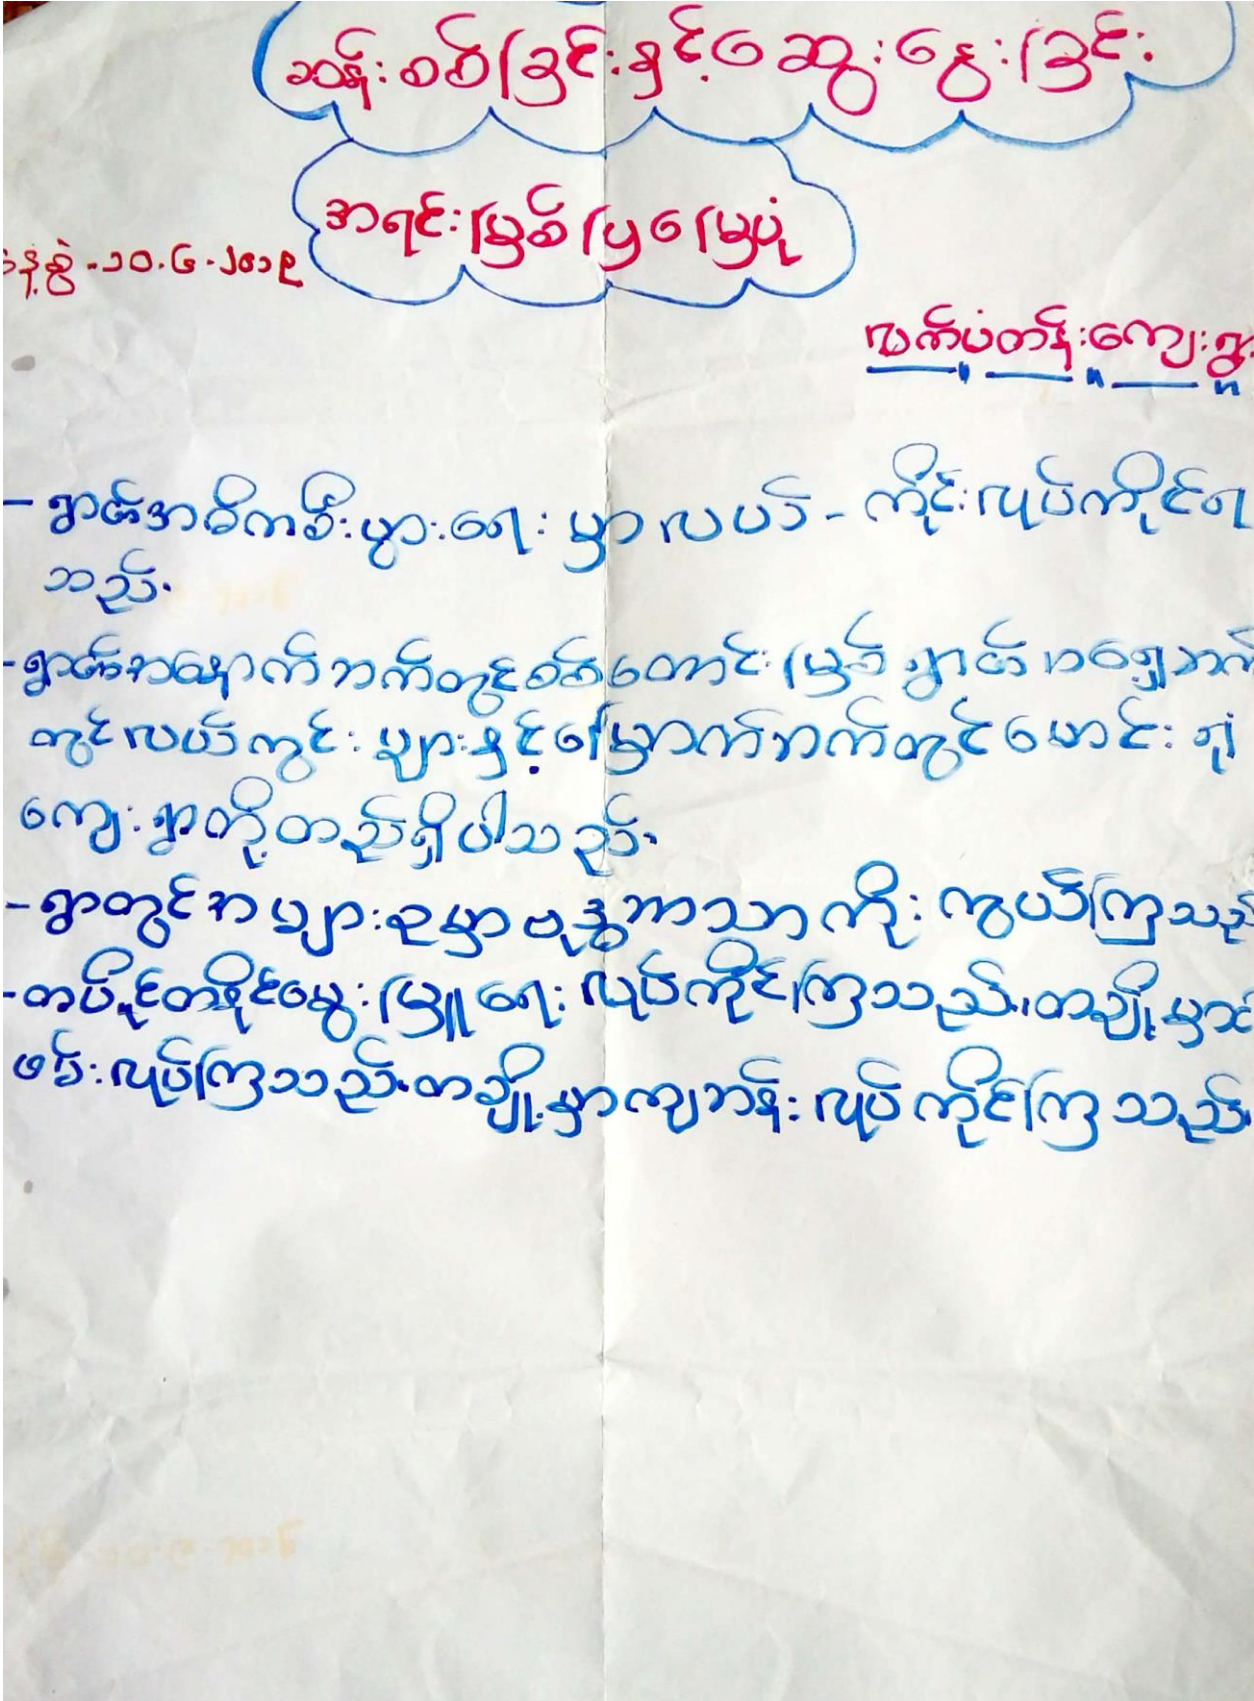 ဆန်းစစ်ခြင်းနှင့်ဆွေးနွေးခြင်း
အရင်းမြစ်ပြမြေပုံ
နေ့စွဲ-၁၀.၆.၂၀၁၉
လက်ပံတန်းကျေးရွာ
- ရွာ၏အဓိကစီးပွားရေးမှာလယ်-ကိုင်းလုပ်ကိုင်ရ
သည်.
- ရွာ၏အနောက်ဘက်တွင်စစ်တောင်းမြစ် ရွာ၏ အရှေ့ဘက်
တွင်လယ်ကွင်းများနှင့်မြောက်ဘက်တွင်မောင်းရုံ
ကျေးရွာတို့တည်ရှိပါသည်.
- ရွာတွင်အများစုမှာဗုဒ္ဓဘာသာကိုးကွယ်ကြသည်
- တပိုင်တနိုင်မွေးမြူရေးလုပ်ကိုင်ကြသည်.၊တချို့မှာငါး
ဖမ်းလုပ်ကြသည်.တချို့မှာကျဘန်းလုပ်ကိုင်ကြသည်.